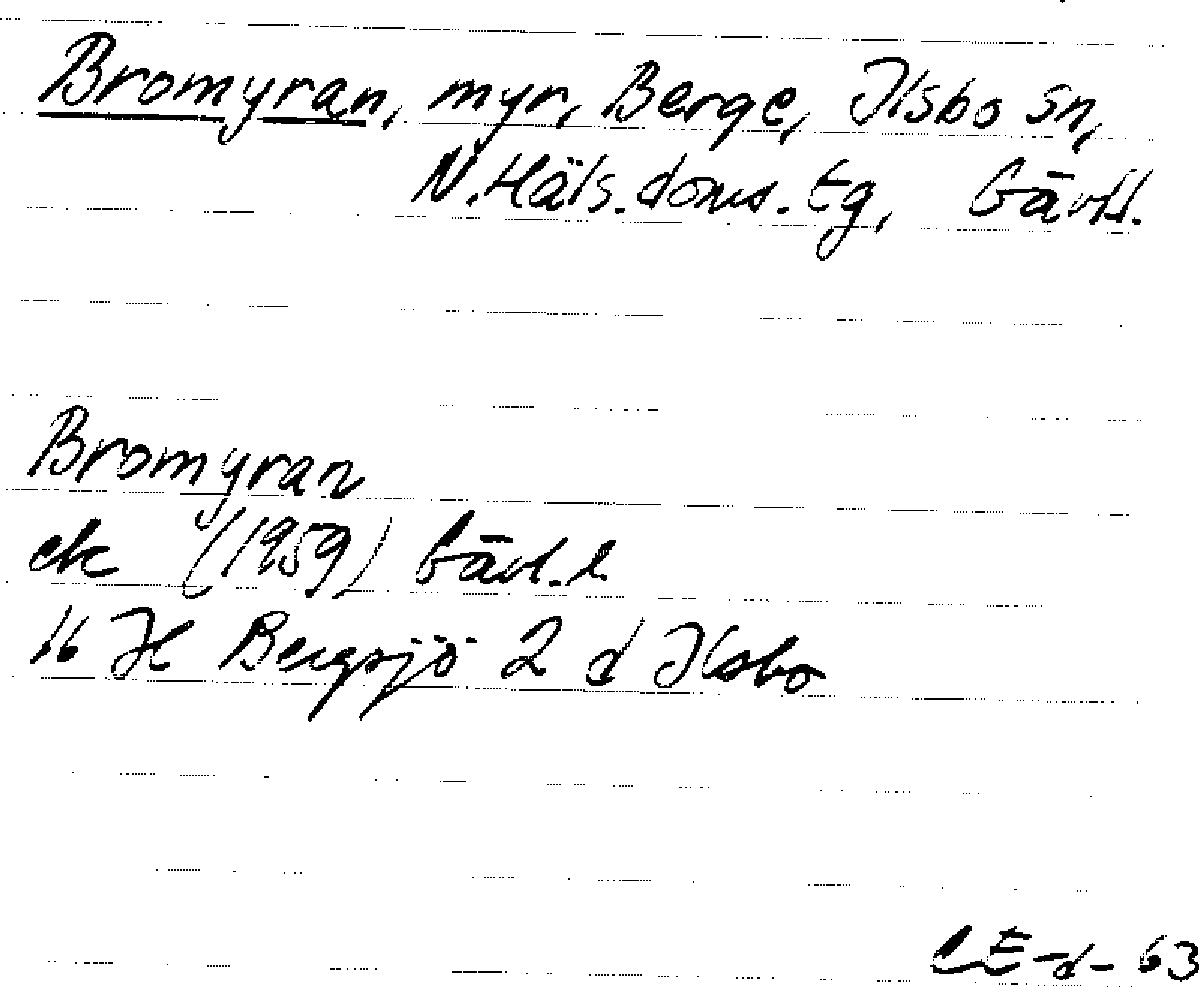 Bromyran, myr, Berge, Ilsbo sn,
N. Häls. doms. tg, Gävl.
Bromyran
ek (1959) Gävl. l.
16 H Bergsjö 2 d Ilsbo
CE-d- 63